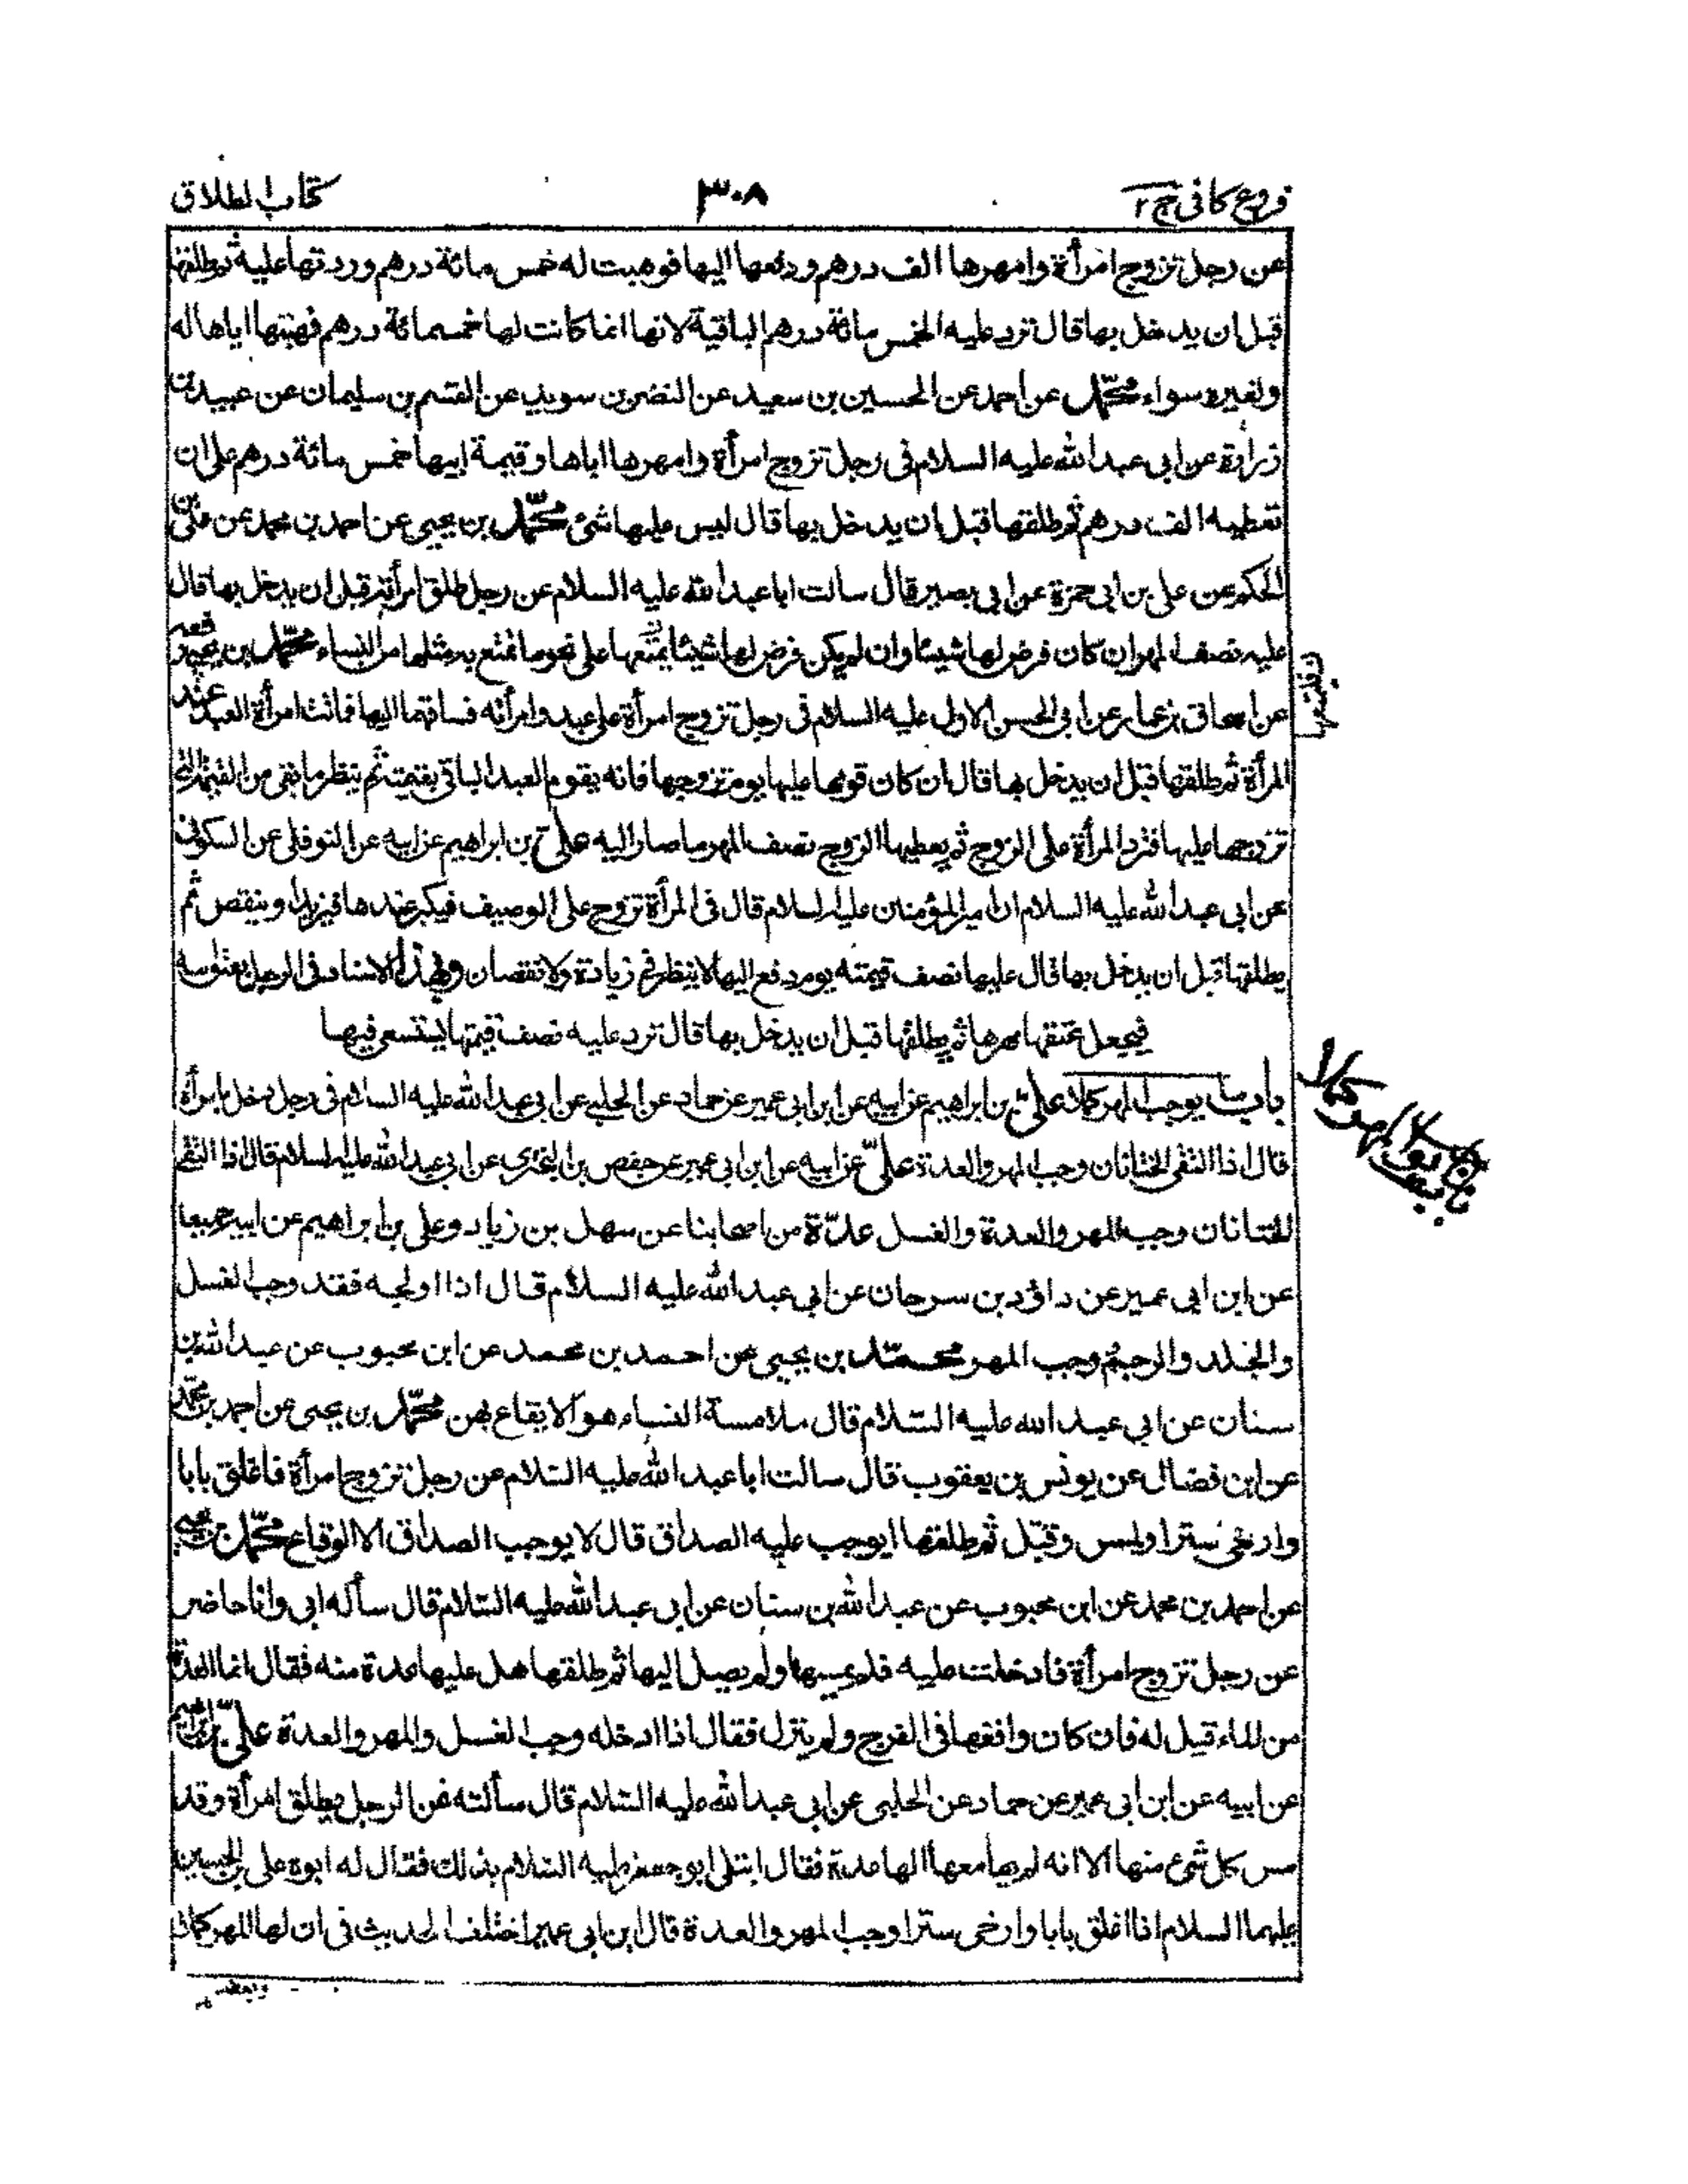 فروع كافى ج ٢
٣٠٨
كتاب الطلاق
عن رجل تزوج امرأة وامهرها الف درهم ودفعها اليها فوهبت له خمس مائة درهم وردتها عليه ثم طلقها
قبل ان يدخل بها قال ترد عليه الخمس مائة درهم الباقية لانها انما كانت لها خمسمائة درهم فهبتها اياها له
ولغيره سواء محمّد عن احمد عن الحسين بن سعيد عن النضر بن سويد عن القسم بن سليمان عن عبيد بن
زرارة عن ابى عبد الله عليه السلام فى رجل تزوج امرأة وامهرها اباها وقيمة ابيها خمس مائة درهم على ان
تعطيه الف درهم ثم طلقها قبل ان يدخل بها قال ليس عليها شئ محمّد بن يحيى عن احمد بن محمد عن على بن
الحكم عن على بن ابى حمزة عن ابى بصير قال سالت ابا عبد الله عليه السلام عن رجل طلق امرأته قبل ان يدخل بها قال
عليه نصف المهر ان كان فرض لها شيئا وان لم يكن فرض لها شيئا يمتعها على نحو ما تمتع به مثلها من النساء محمّد بن يحيى رفعه
عن اسحاق بن عمار عن ابى الحسن الاول عليه السلام فى رجل تزوج امرأة على عبد وامرأته فساقهما اليها فماتت امرأة العبد عند
المرأة ثم طلقها قبل ان يدخل بها قال ان كان قومها عليها يوم تزوجها فانه يقوم العبد الباقى بقيمته ثم ينظر ما بقى من القيمة التى
تزوجها عليها فترد المرأة على الزوج ثم يعطيها الزوج نصف المهر مما صار اليه علىّ بن ابراهيم عن ابيه عن النوفلى عن السكونى
عن ابى عبد الله عليه السلام ان امير المؤمنين عليه السلام قال فى المرأة تزوج على الوصيف فيكبر عندها فيزيد او ينقص ثم
يطلقها قبل ان يدخل بها قال عليها نصف قيمته يوم دفع اليها لا ينظر فى زيادة ولا نقصان وبهذا الاسناد فى الرجل يعتق امته
فيجعل عتقها مهرها ثم يطلقها قبل ان يدخل بها قال ترد عليه نصف قيمتها يستسعى فيها
باب ما يوجب المهر كملا علىّ بن ابراهيم عن ابيه عن ابن ابى عمير عن حماد عن الحلبى عن ابى عبد الله عليه السلام فى رجل دخل بامرأة
قال اذا التقى الختانان وجب المهر والعدة علىّ عن ابيه عن ابن ابى عمير عن حفص بن البخترى عن ابى عبد الله عليه السلام قال اذا التقى
الختانان وجب المهر والعدة والغسل عدّة من اصحابنا عن سهل بن زياد وعلى بن ابراهيم عن ابيه جميعا
عن ابن ابى عمير عن داؤد بن سرحان عن ابى عبد الله عليه السلام قال اذا اولجه فقد وجب الغسل
والجلد والرجم ووجب المهر محمّد بن يحيى عن احمد بن محمد عن ابن محبوب عن عبد الله بن
سنان عن ابى عبد الله عليه السّلام قال ملامسة النساء هو الايقاع بهن محمّد بن يحيى عن احمد بن محمّد
عن ابن فضال عن يونس بن يعقوب قال سالت ابا عبد الله عليه السّلام عن رجل تزوج امرأة فاغلق بابا
وارخى سترا ولمس وقبّل ثم طلقها ايوجب عليه الصداق قال لا يوجب الصداق الا الوقاع محمّد بن يحيى
عن احمد بن محمد عن ابن محبوب عن عبد الله بن سنان عن ابى عبد الله عليه السّلام قال سأله ابى وانا حاضر
عن رجل تزوج امرأة فادخلت عليه فلم يمسها ولم يصل اليها ثم طلقها هل عليها عدة منه فقال انما العدة
من الماء قيل له فان كان واقعها فى الفرج ولم ينزل فقال اذا ادخله وجب الغسل والمهر والعدة علىّ بن ابراهيم
عن ابيه عن ابن ابى عمير عن حماد عن الحلبى عن ابى عبد الله عليه السّلام قال سألته عن الرجل يطلق امرأة وقد
مس كل شئ منها الا انه لم يجامعها الها عدة فقال ابتلى ابو جعفر عليه السّلام بذلك فقال له ابوه على بن الحسين
عليهما السلام اذا اغلق بابا وارخى سترا وجب المهر والعدة قال ابن ابى عمير اختلف الحديث فى ان لها المهر كملا
وبعضهم